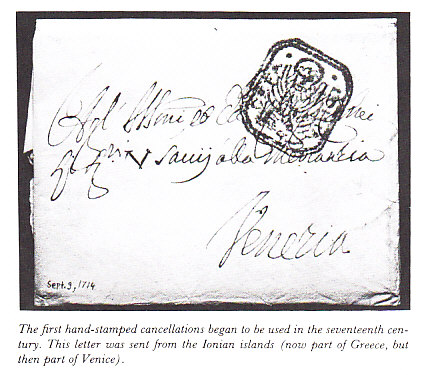 Venezia
Sept. 9, 1714
The first hand-stamped cancellations began to be used in the seventeenth cen-
tury. This letter was sent from the Ionian islands (now part of Greece, but
then part of Venice).